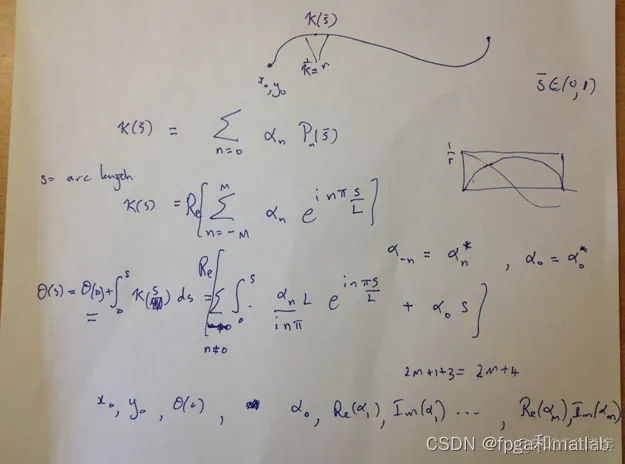 K(s̄)
1/K = r
x₀, y₀
s̄ ∈ (0, 1)
K(s̄) = ∑ n=0 αₙ Pₙ(s̄)
1/r
s = arc length
K(s) = Re[ ∑ n=-M M αₙ e^{i nπ s/L} ]
α₋ₙ = αₙ* , α₀ = α₀*
θ(s) = θ(0) + ∫₀ˢ K(s) ds = Re[ ∑ n≠0 ∫₀ˢ αₙ L / inπ e^{i nπ s/L} + α₀ s ]
2M+1+3 = 2M+4
x₀, y₀, θ(0), α₀, Re(α₁), Im(α₁) ⋯ , Re(αₘ), Im(αₘ)
CSDN @fpga和matlab